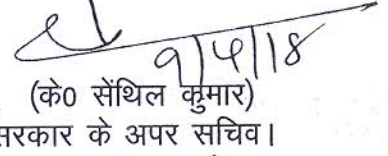 9/5/18
(के0 सेंथिल कुमार)
सरकार के अपर सचिव।